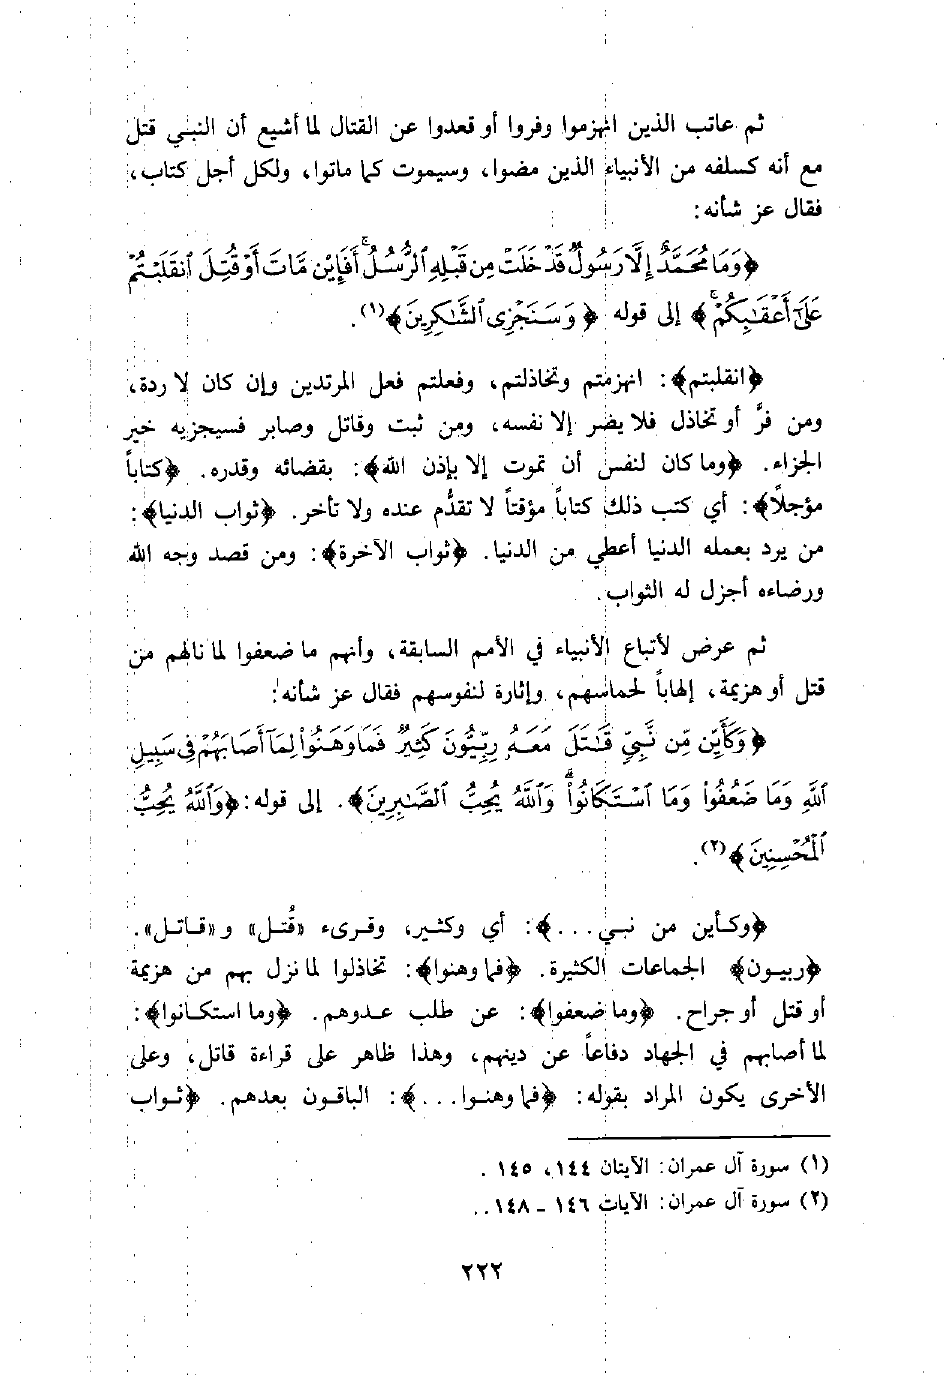 ثم عاتب الذين انهزموا وفروا أو قعدوا عن القتال لما أشيع أن النبي قتل
مع أنه كسلفه من الأنبياء الذين مضوا، وسيموت كما ماتوا، ولكل أجل كتاب،
فقال عز شأنه:
﴿وَمَا مُحَمَّدٌ إِلَّا رَسُولٌ قَدْ خَلَتْ مِن قَبْلِهِ ٱلرُّسُلُ ۚ أَفَإِيْن مَّاتَ أَوْ قُتِلَ ٱنقَلَبْتُمْ
عَلَىٰٓ أَعْقَـٰبِكُمْ ۚ﴾ إلى قوله ﴿وَسَنَجْزِى ٱلشَّـٰكِرِينَ﴾(١).
﴿انقلبتم﴾: انهزمتم وتخاذلتم، وفعلتم فعل المرتدين وإن كان لا ردة،
ومن فرَّ أو تخاذل فلا يضر إلا نفسه، ومن ثبت وقاتل وصابر فسيجزيه خير
الجزاء. ﴿وما كان لنفس أن تموت إلا بإذن الله﴾: بقضائه وقدره. ﴿كتاباً
مؤجلاً﴾: أي كتب ذلك كتاباً مؤقتاً لا تقدُّم عنده ولا تأخر. ﴿ثواب الدنيا﴾:
من يرد بعمله الدنيا أعطي من الدنيا. ﴿ثواب الآخرة﴾: ومن قصد وجه الله
ورضاءه أجزل له الثواب.
ثم عرض لأتباع الأنبياء في الأمم السابقة، وأنهم ما ضعفوا لما نالهم من
قتل أو هزيمة، إلهاباً لحماسهم، وإثارة لنفوسهم فقال عز شأنه:
﴿وَكَأَيِّن مِّن نَّبِيٍّ قَـٰتَلَ مَعَهُۥ رِبِّيُّونَ كَثِيرٌ فَمَا وَهَنُوا۟ لِمَآ أَصَابَهُمْ فِى سَبِيلِ
ٱللَّهِ وَمَا ضَعُفُوا۟ وَمَا ٱسْتَكَانُوا۟ ۗ وَٱللَّهُ يُحِبُّ ٱلصَّـٰبِرِينَ﴾. إلى قوله: ﴿وَٱللَّهُ يُحِبُّ
ٱلْمُحْسِنِينَ﴾(٢).
﴿وكأين من نبي...﴾: أي وكثير، وقرىء «قُتل» و«قاتل».
﴿ربيون﴾ الجماعات الكثيرة. ﴿فما وهنوا﴾: تخاذلوا لما نزل بهم من هزيمة
أو قتل أو جراح. ﴿وما ضعفوا﴾: عن طلب عدوهم. ﴿وما استكانوا﴾:
لما أصابهم في الجهاد دفاعاً عن دينهم، وهذا ظاهر على قراءة قاتل، وعلى
الأخرى يكون المراد بقوله: ﴿فما وهنوا...﴾: الباقون بعدهم. ﴿ثواب
(١) سورة آل عمران: الآيتان ١٤٤، ١٤٥.
(٢) سورة آل عمران: الآيات ١٤٦ - ١٤٨..
٢٢٢